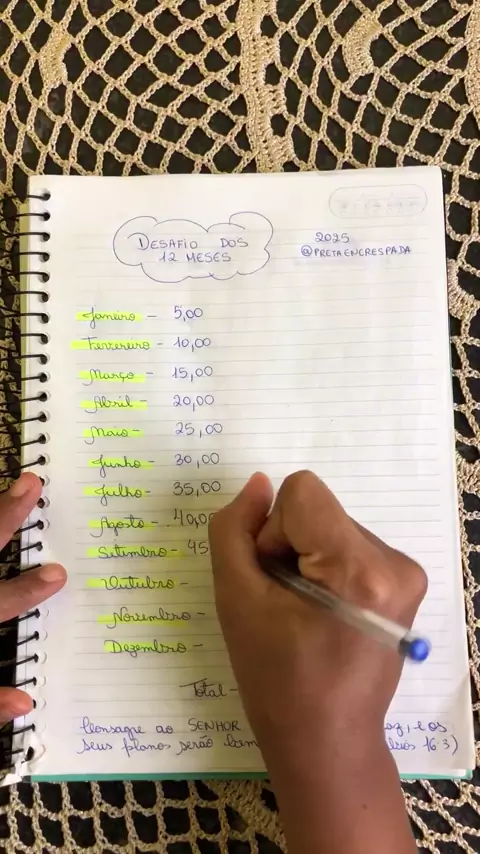 DESAFIO DOS
12 MESES
2025
@PRETAENCRESPADA
Janeiro - 5,00
Ferrereiro - 10,00
Março - 15,00
Abril - 20,00
Maio - 25,00
Junho - 30,00
Julho - 35,00
Agosto - 40,0
Setembro - 45
Outubro -
Novembro -
Dezembro -
Total -
Consagre ao SENHOR
seus planos serão bem 16:3)